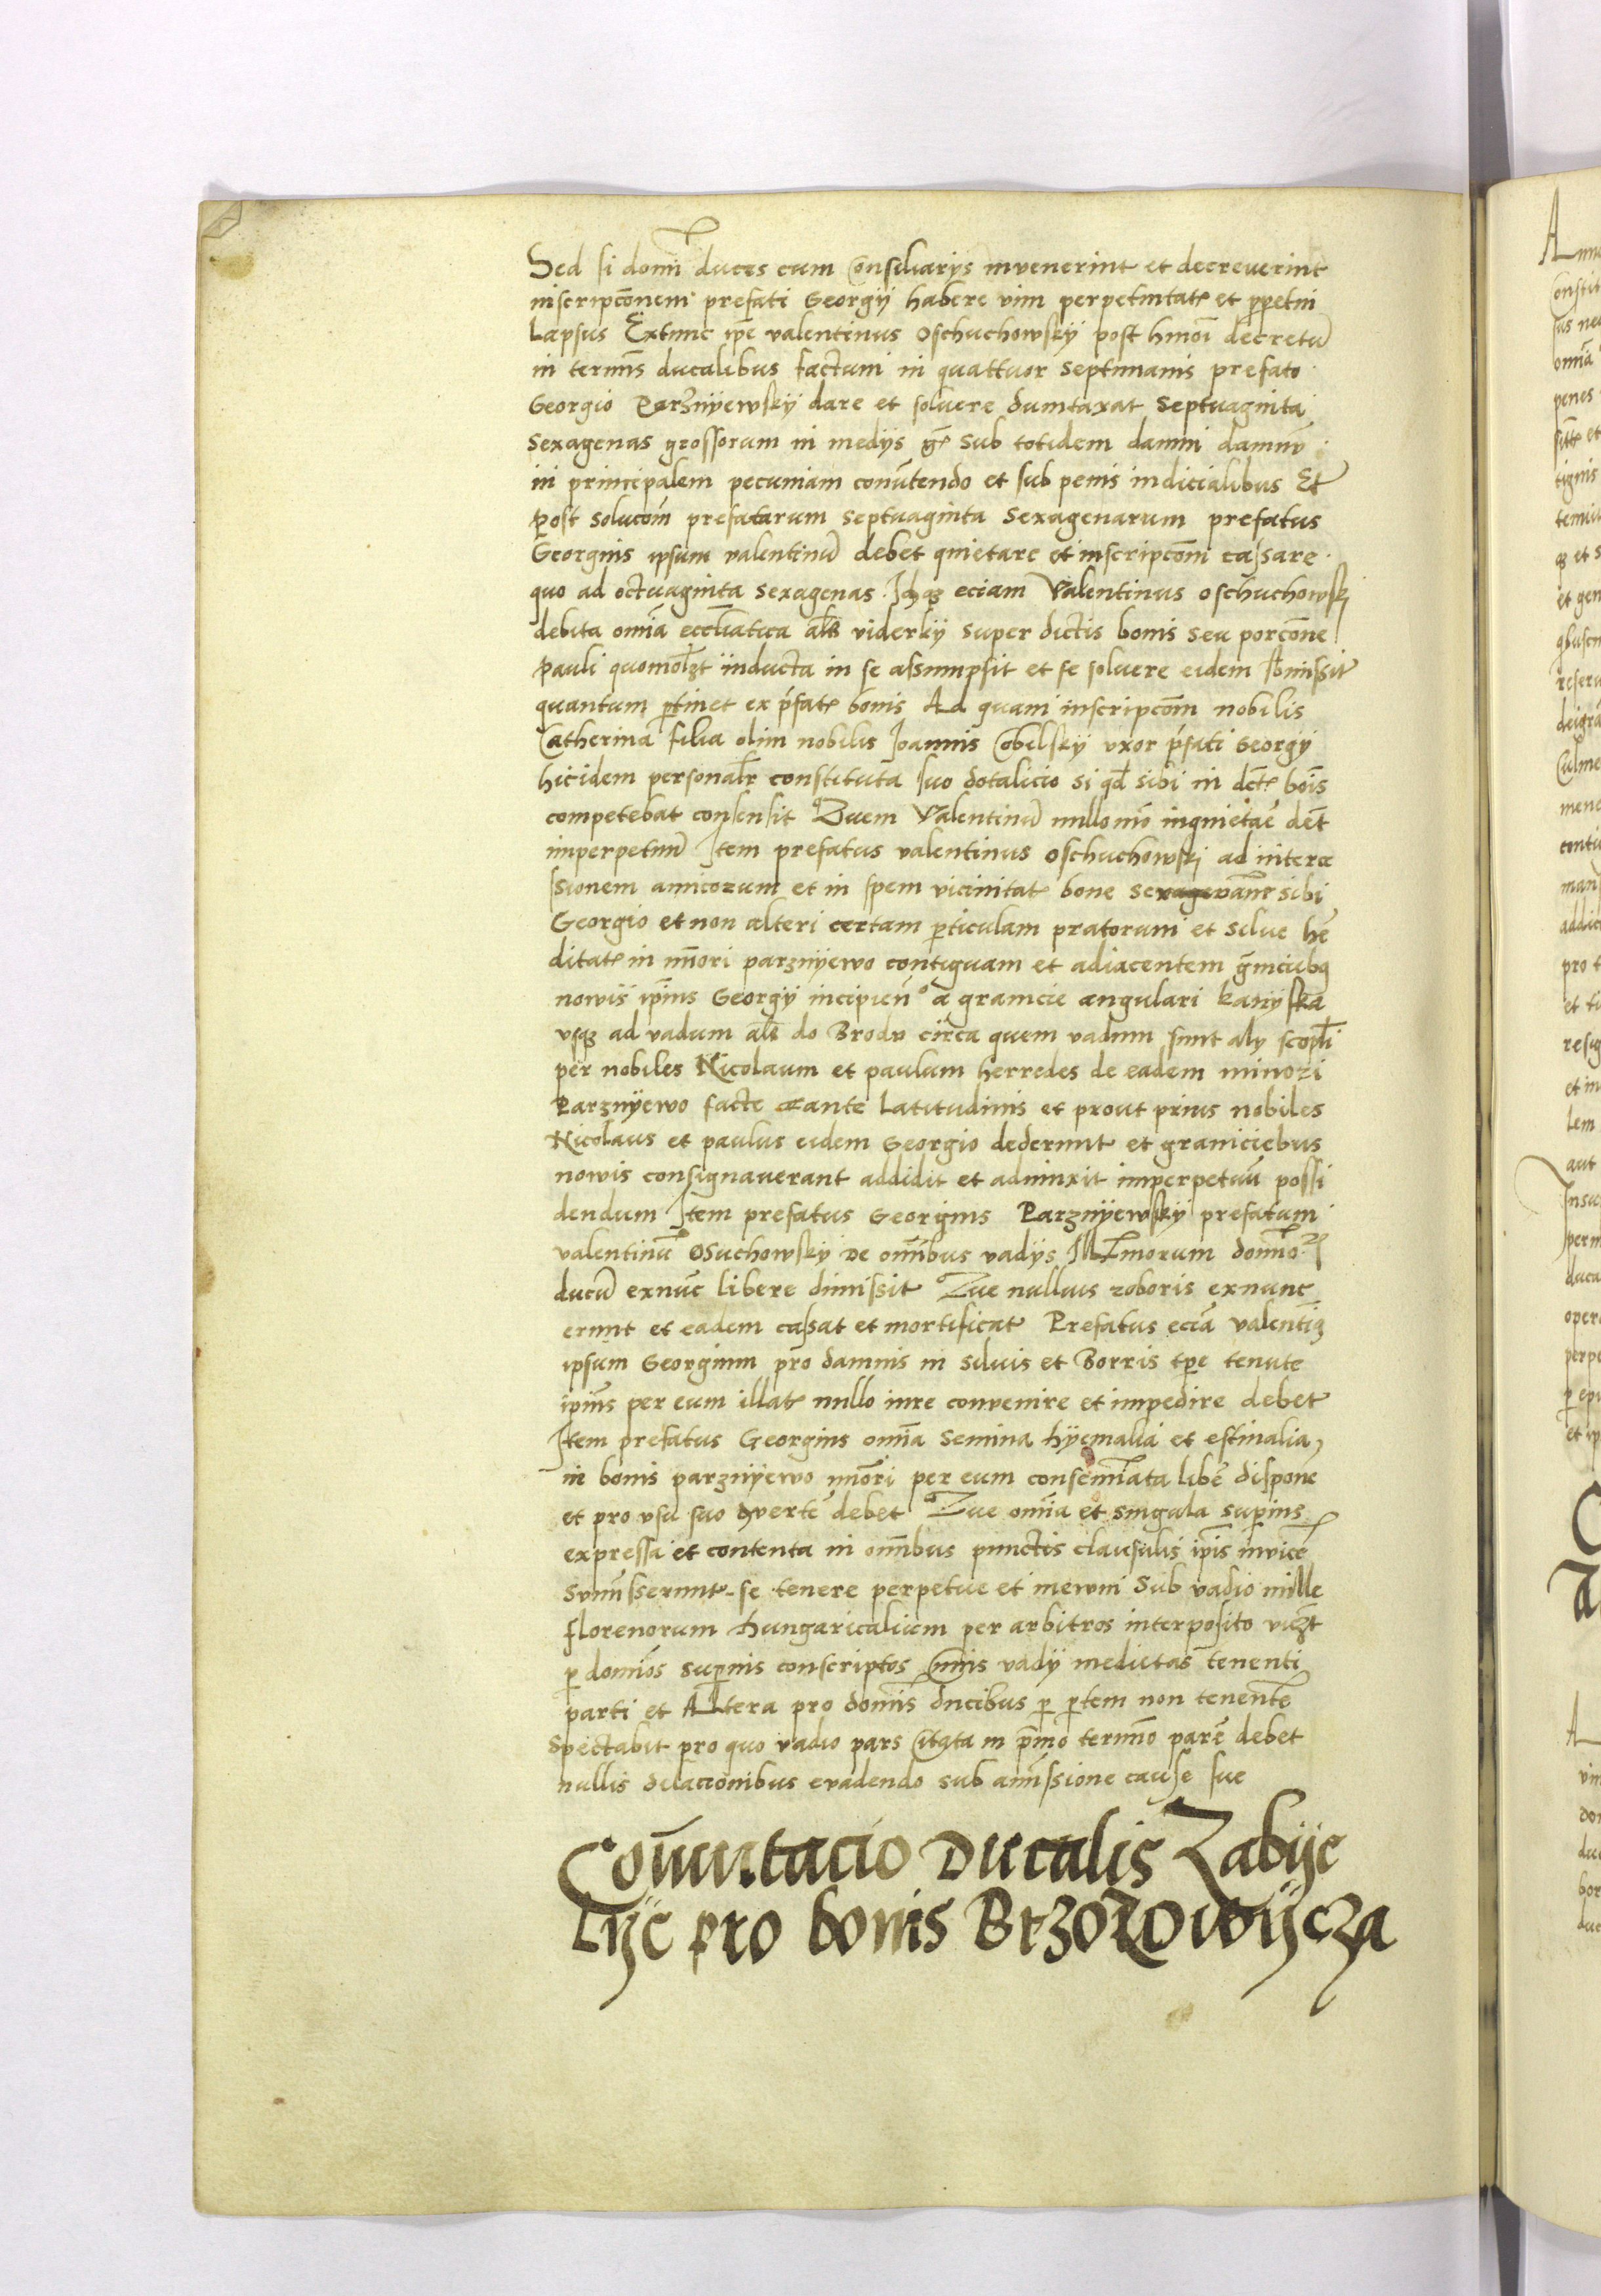 Sed si domī duces cum Consiliarijs invenerint et decreverint
inscripcōnem prefati Georgij habere vim perpetuitatꝭ et ꝑpetui
Lapsus Extunc ip̄e valentinus Oschuchowskÿ post hmōi decretū
in termīs ducalibus factum in quattuor septimanis prefato
Georgio Parznÿewskÿ dare et solvere dumtaxat septuaginta
sexagenas grossorum in medijs gꝭ sub totidem damni damnū
in principalem pecuniam convtendo et sub penis iudicialibus Et
Post solucōm prefatarum septuaginta sexagenarum prefatus
Georgius ipsum valentinū debet quietare et inscripcōm cassare
quo ad octuaginta sexagenas eciam Valentinus oschuchowskj
debita omīa eccl̄iatica al̄s viderkÿ super dictis bonis seu porcōne
Pauli quomol̄zt inducta in se assumpsit et se solvere eidem sb̄missit
quantum ꝑtinet ex p̄fatꝭ bonis Ad quam inscripcōm nobilis
Catherina filia olim nobilis Joannis Cobelskÿ vxor p̄fati Georgÿ
hicidem personal̄r constituta suo dotalicio si qd̄ sibi in dc̄tꝭ bōis
competebat consensit Quem Valentinū nullo mō inquietāe dēt
imperpetuū Item prefatus valentinus oschuchowskj ad interce
ssionem amicorum et in spem vicinitatꝭ bone sibi
Georgio et non alteri certam ꝑticulam pratorum et silve hē
ditatꝭ in mn̄ori parznÿewo contiguam et adiacentem gn̄iciebꝫ
nowis ip̄ius Georgÿ incipien̄ a granicie angulari kanÿska
vsqꝫ ad vadum al̄s do Brodu circa quem vadum sunt alÿ scopl̄i
per nobiles Nicolaum et paulum herredes de eadem minori
Parznÿewo facte ante Latitudinis et prout prius nobiles
Nicolaus et paulus eidem Georgio dederunt et graniciebus
nowis consignaverant addidit et adiunxit imperpetuū possi
dendum Item prefatus Georgius Parznÿewskÿ prefatum
valentinū Osuchowskÿ de omībus vadijs Ill̄imorum dom̄oꝝ
ducū exnūc libere dimissit Que nullius roboris exnunc
erunt et eadem cassat et mortificat Prefatus eciā valentiꝫ
ipsum Georgium pro damnis in silvis et Borris tp̄e tenute
ip̄ius per eum illatꝭ nullo iure convenire et impedire debet
Item prefatus Georgius omīa semina hÿemalia et estivalia
in bonis parznÿewo mn̄ori per eum consemīata libē disponē
et pro vsu suo ꝯvertē debet Que omīa et singula superius
expressa et contenta in omībus punctis clausulis ip̄is invicē
submisserunt se tenere perpetue et inewni sub vadio mille
florenorum Hungaricalium per arbitros interposito vidzt
ꝑ domīos superius conscriptos Cuius vadÿ medietas tenenti
parti et Altera pro domīs ducibus ꝑ ꝑtem non tenentē
Spectabit pro quo vadio pars Citata in p̄mo termīo parē debet
nullis dilacionibus evadendo sub amīssione cause sue
Com̄utacio Ducalis Zabÿe
Lÿe pro bonis Brzozowÿcza